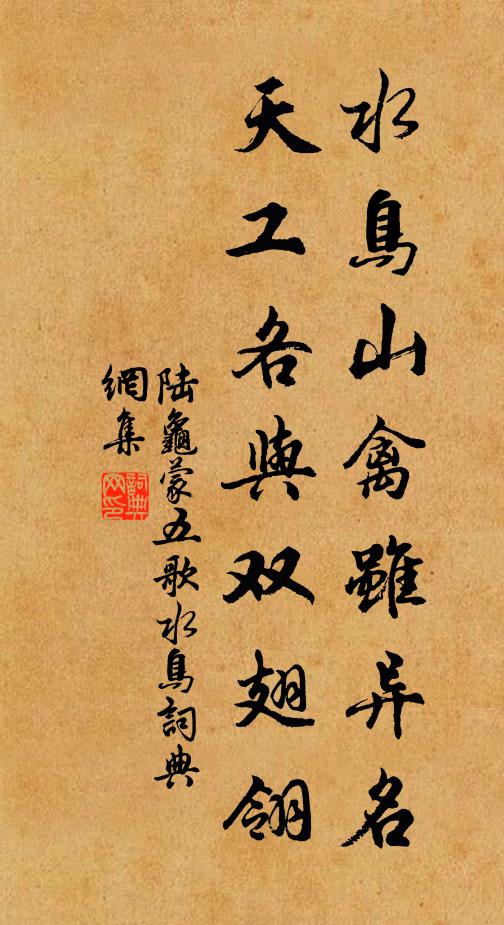 水鳥山禽雖异名
天工各與双翅翎
陆龜蒙五歌水鳥詞典
網集
詞典
网印